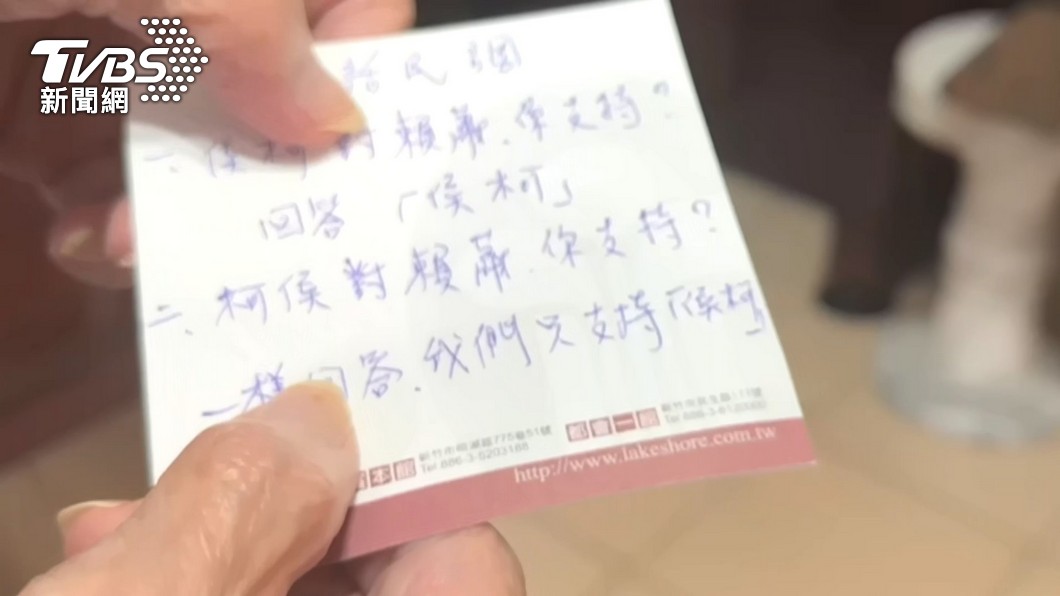 TVBS
新聞網
民調
一、侯柯對賴蕭、你支持？
回答「侯柯」
二、柯侯對賴蕭、你支持？
一樣回答、我們只支持「侯柯」
本館 新竹市明湖路775巷51號
Tel 886-3-5203188
都會一館 新竹市民生路
http://www.lakeshore.com.tw